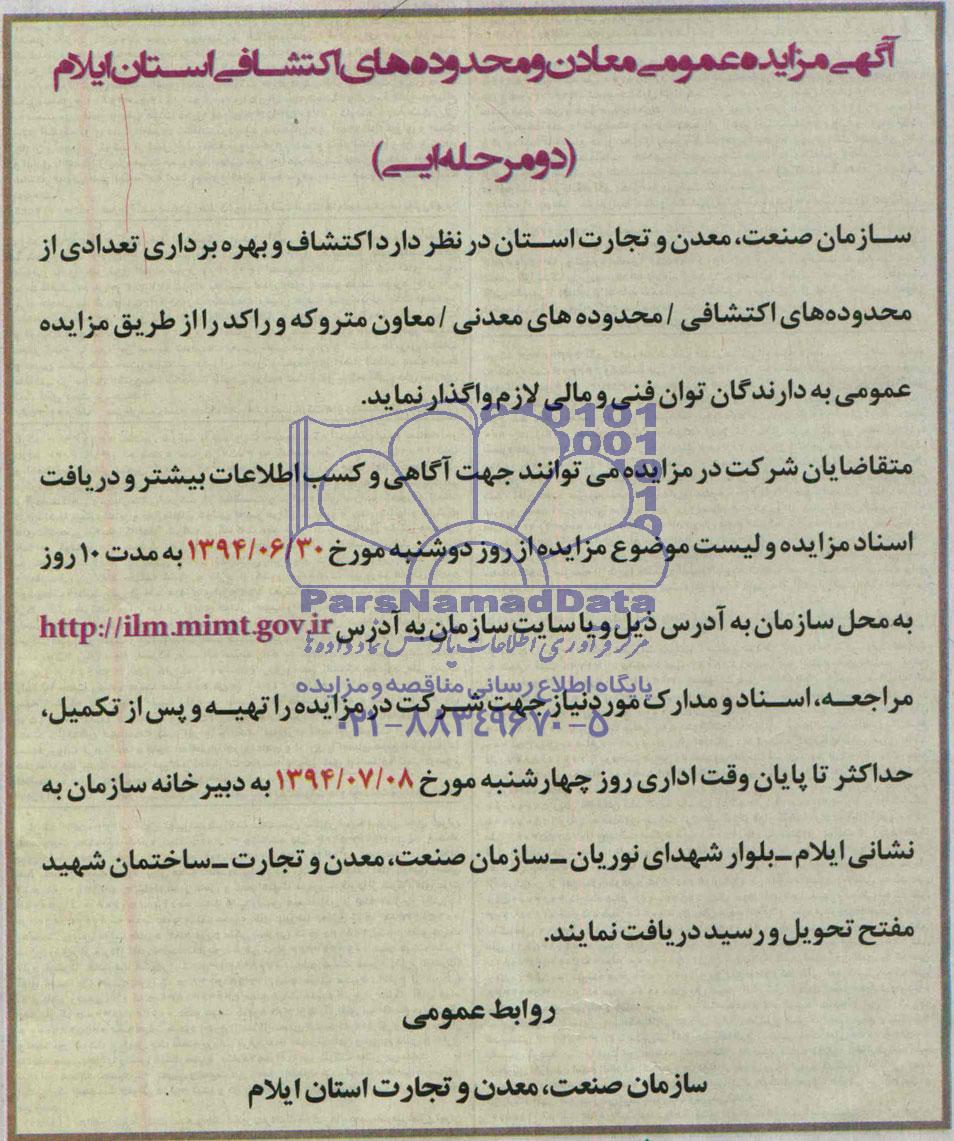 آگهی مزایده عمومی معادن و محدوده های اکتشافی استان ایلام
(دو مرحله ایی)
سازمان صنعت، معدن و تجارت استان در نظر دارد اکتشاف و بهره برداری تعدادی از
محدوده‌های اکتشافی / محدوده های معدنی / معاون متروکه و راکد را از طریق مزایده
عمومی به دارندگان توان فنی و مالی لازم واگذار نماید.
متقاضایان شرکت در مزایده می توانند جهت آگاهی و کسب اطلاعات بیشتر و دریافت
اسناد مزایده و لیست موضوع مزایده از روز دوشنبه مورخ ۱۳۹۴/۰۶/۳۰ به مدت ۱۰ روز
به محل سازمان به آدرس ذیل و یا سایت سازمان به آدرس http://ilm.mimt.gov.ir
مراجعه، اسناد و مدارک موردنیاز جهت شرکت در مزایده را تهیه و پس از تکمیل،
حداکثر تا پایان وقت اداری روز چهارشنبه مورخ ۱۳۹۴/۰۷/۰۸ به دبیرخانه سازمان به
نشانی ایلام ـ بلوار شهدای نوریان ـ سازمان صنعت، معدن و تجارت ـ ساختمان شهید
مفتح تحویل و رسید دریافت نمایند.
روابط عمومی
سازمان صنعت، معدن و تجارت استان ایلام
ParsNamadData
مرکز فرآوری اطلاعات پارس نماد داده ها
پایگاه اطلاع رسانی مناقصه و مزایده
۰۲۱-۸۸۳۴۹۶۷۰-۵